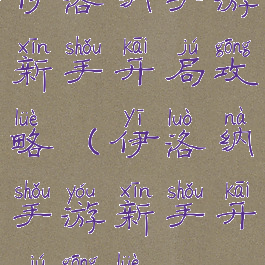 xīn shǒu kāi jú gōng
新手开局攻
lüè yī luò nà
略（伊洛纳
shǒu yóu xīn shǒu kāi
手游新手开
jú gōng lüè